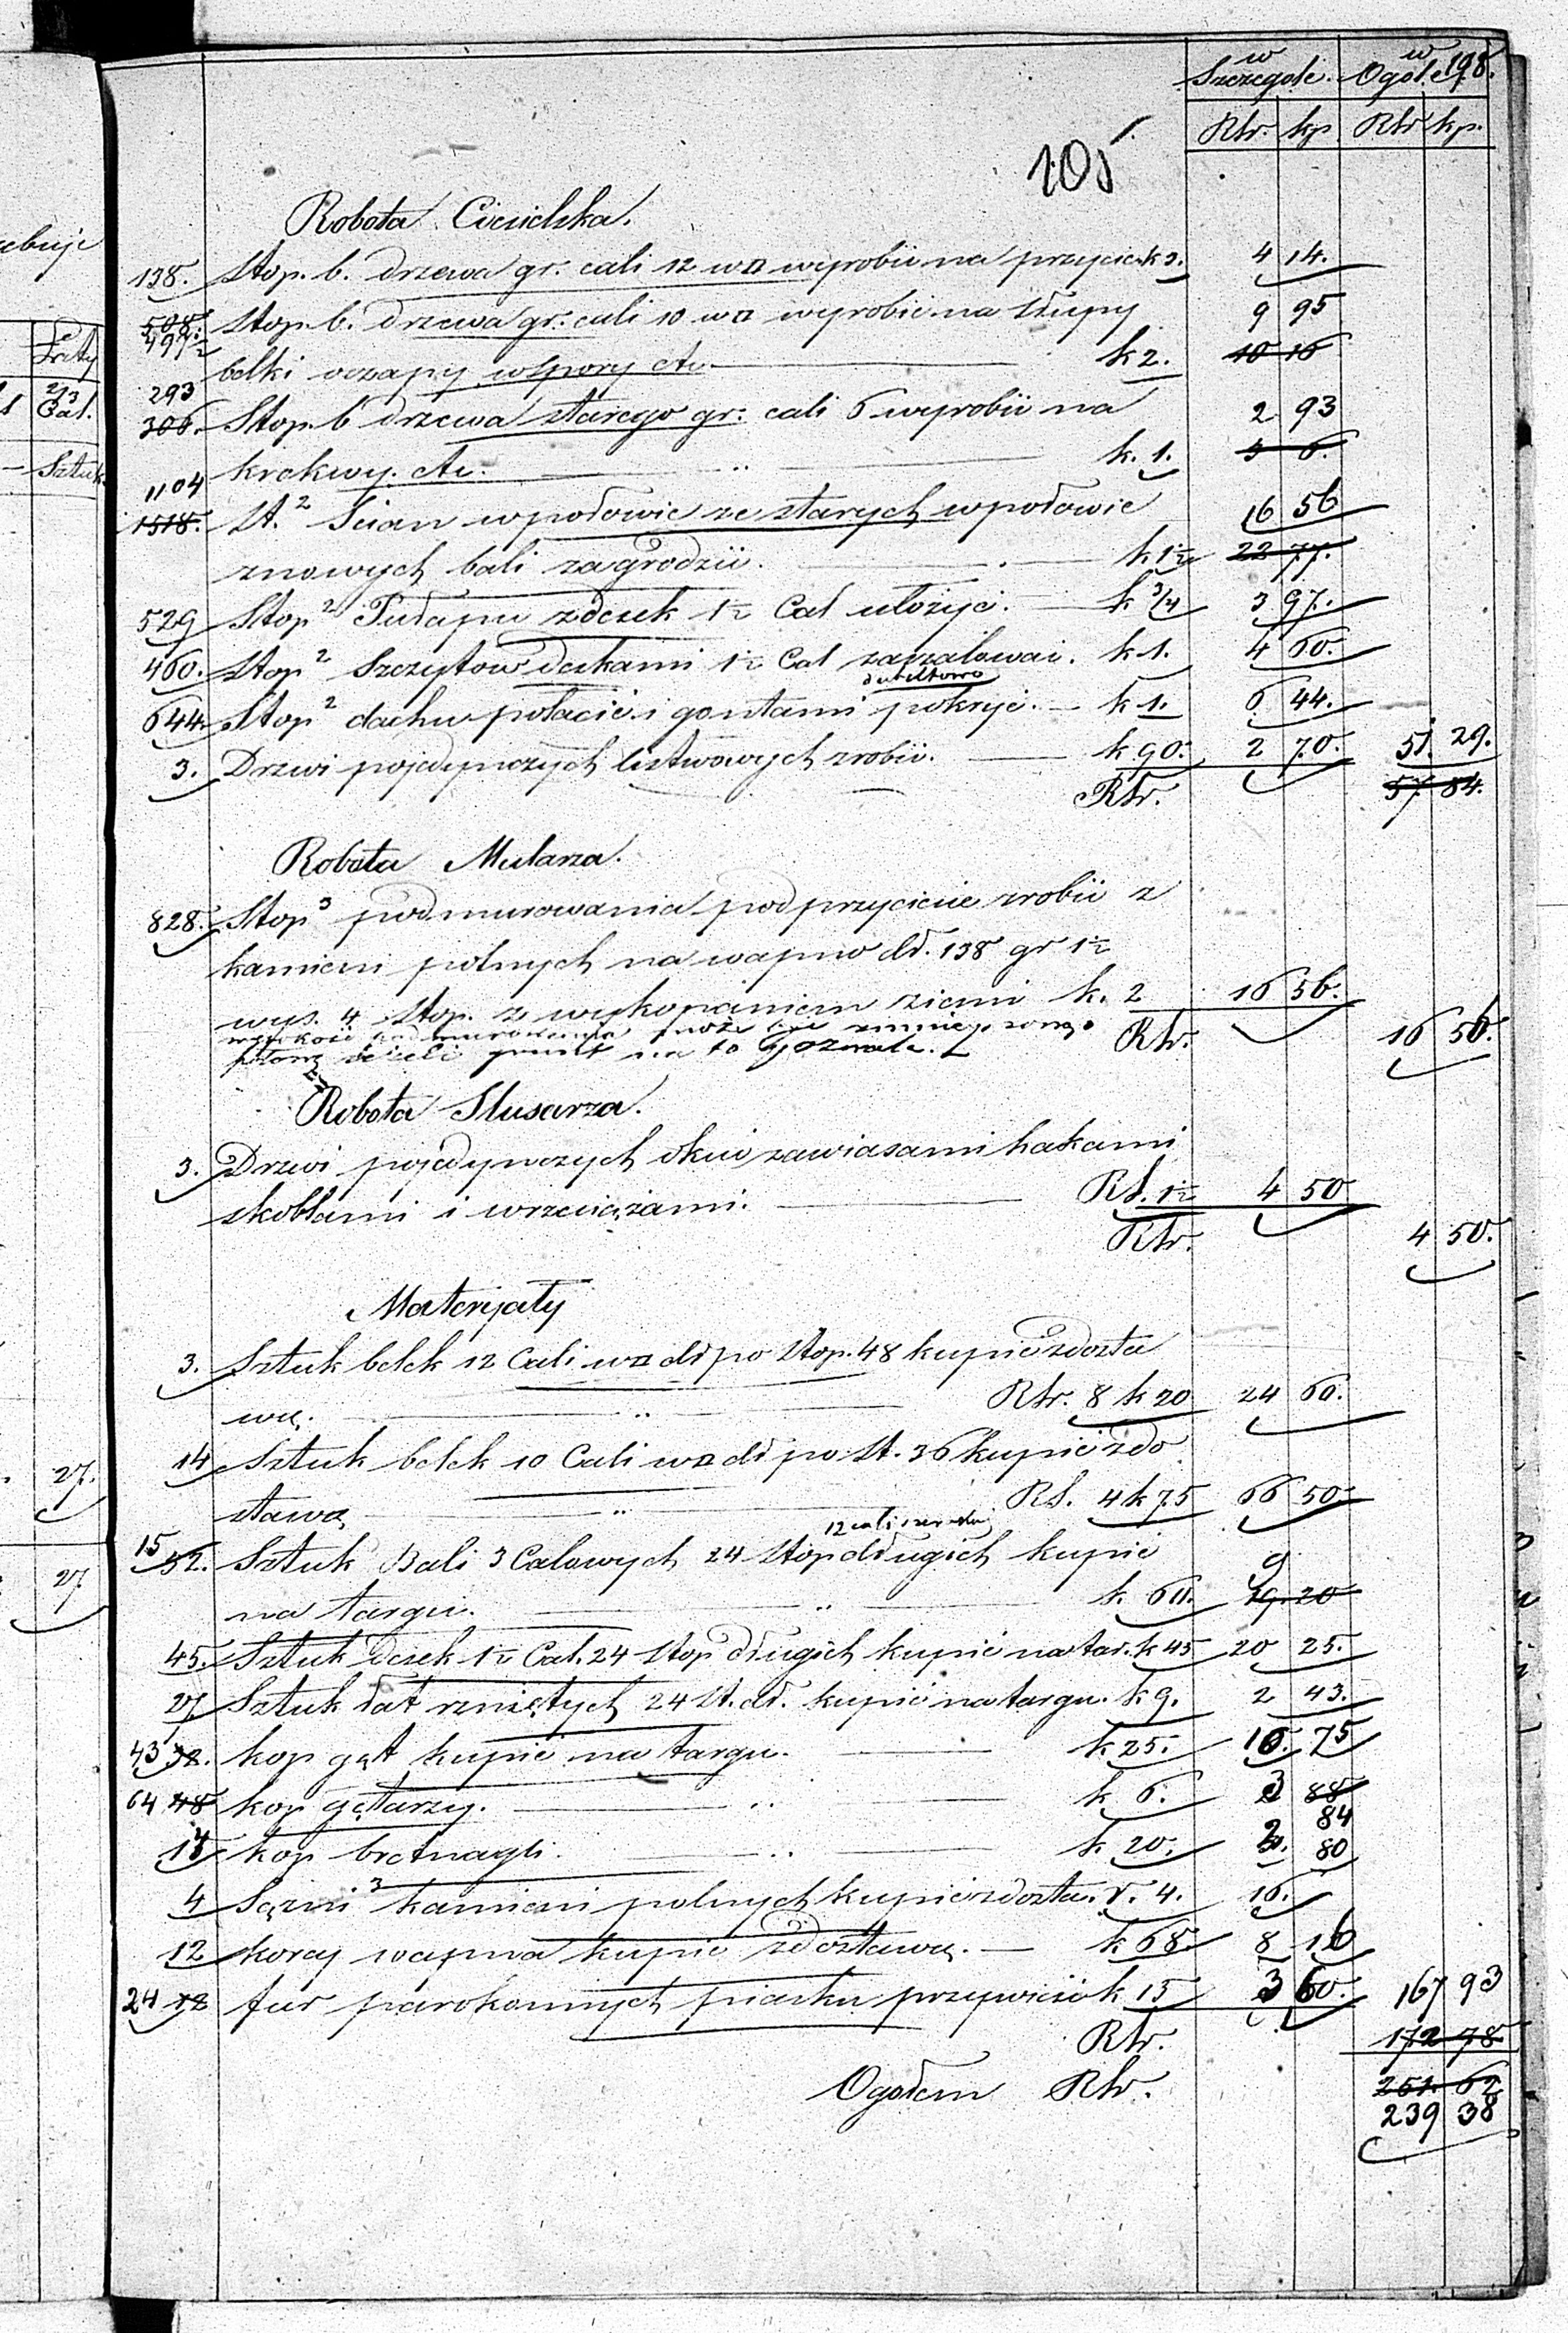 w Szczegole. w Ogole 198.
Rbr. kp Rbr kp.
105
Robota Ciesielska.
138. Stop. b. drzewa gr. cali 12 w □ wyrobić na przycie. k 3. 4 14.
508. 497½ Stop. b. drzewa gr. cali 10 w □ wyrobić na słupy 9 95
belki oczapy wspory etc. k 2. 10 16
293 306. Stop. b drzewa starego gr: cali 6 wyrobić na 2 93
krokwy. etc. " k. 1. 3 6.
1104 1518. St.² Scian wpołowie ze starych wpołowie 16 56
znowych bali zagrodzić. k 1½ 22 77.
529 Stop² Pułapu zdesek 1½ Cal ułożyć. k ¾ 3 97.
460. Stop² Szczytow deskami 1½ Cal zaszalować. k 1. 4 60.
dubeltowo
644. Stop² dachu połacić i gontami pokryć. k 1. 6 44.
3. Drzwi pojedynczych listwowych zrobić. k 90. 2 70. 51. 29.
Rbr. 57 84.
Robota Mularza.
828. Stop³ podmurowania pod przyciesie zrobić z
kamieni polnych na wapno dł. 138 gr 1½
wys. 4 Stop. z wykopaniem ziemi k. 2 16 56.
wysokość podmurowania może być zmniejszoną
jeżeli grunt na to pozwala. Rbr. 16 56.
Robota Slusarza.
3. Drzwi pojedynczych okuć zawiasami hakami
skoblami i wrzeciążami. RS. 1½ 4 50
Rbr. 4 50.
Materyały
3. Sztuk belek 12 Cali w □ dł po Stop. 48 kupić zdosta
wą. " Rbr. 8 k 20 24 60.
14 Sztuk belek 10 Cali w □ dł po St. 36 kupić zdo
stawą " RS. 4 k 75 66 50.
12 cali szeroki
15 32. Sztuk Bali 3 Calowych 24 Stop długich kupić 9
na targu. " k. 60. 19 20
45. Sztuk desek 1½ Cal. 24 Stop długich kupić na tar. k 45 20 25.
27 Sztuk łat rzniętych 24 St. dł. kupić na targu. k 9. 2 43.
43 32. kop gąt kupić na targu. k 25. 10. 75
64 48 kop gętarzy. " k 6. 3 88
84
14 kop bretnagli. " k 20. 2. 80
4 Sązni³ kamieni polnych kupić zdosta. r. 4. 16.
12 korcy wapna kupić zdostawą. k 68. 8 16
24 12 fur parokonnych piasku przywieść k 15 3 60. 167 93
Rbr. 172 78
Ogołem Rbr. 251. 62
239 38
ebuje
Cal.
Sztuk.
27.
27